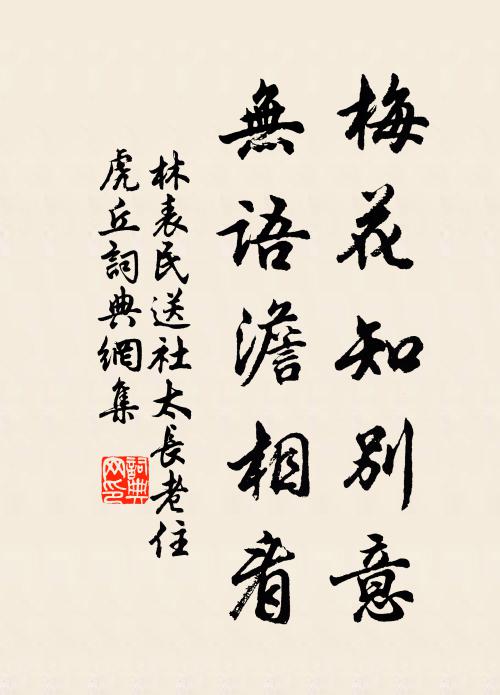 梅花知别意
無語澹相看
林表民送社太長老住
虎丘詞典網集
詞典网印